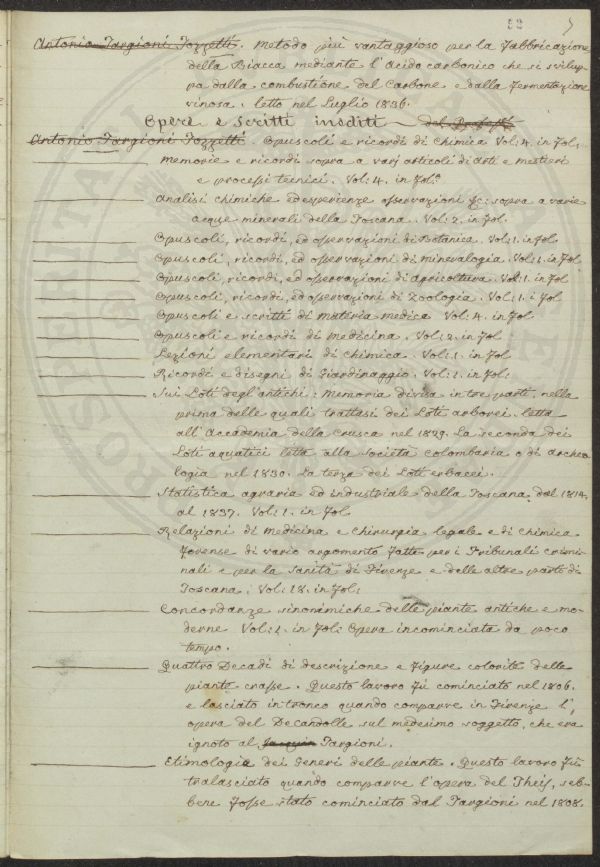 53 5
Antonio Targioni Tozzetti. Metodo più vantaggioso per la fabbricazione
della Biacca mediante l'Acido carbonico che si svilup-
pa dalla combustione del Carbone e dalla fermentazione
vinosa. letto nel Luglio 1836.
Opere e Scritti inediti
Antonio Targioni Tozzetti. Opuscoli e ricordi di Chimica Vol: 4. in fol:
Memorie e ricordi sopra a varj articoli di arti e mestieri
e processi tecnici. Vol: 4. in fol:º
Analisi chimiche ed esperienze osservazioni &c: sopra a varie
acque minerali della Toscana. Vol: 2. in fol.
Opuscoli, ricordi, ed osservazioni di Botanica. Vol: 1. in fol.
Opuscoli, ricordi, ed osservazioni di mineralogia. Vol: 1. in fol
Opuscoli, ricordi, ed osservazioni di Agricoltura. Vol: 1. in fol
Opuscoli, ricordi, ed osservazioni di Zoologia. Vol: 1. i fol
Opuscoli e scritti di materia medica Vol: 4. in fol
Opuscoli e ricordi di medicina. Vol: 2. in fol
Lezioni elementari di chimica. Vol: 1. in fol
Ricordi e disegni di Giardinaggio. Vol: 1. in fol:
Sui Loti degl'antichi: Memoria divisa in tre parti, nella
prima delle quali trattasi dei Loti arborei. letta
all'Accademia della Crusca nel 1829. La seconda dei
Loti aquatici letta alla Società Colombaria o di archeo
logia nel 1830. La terza dei Loti erbacei.
Statistica agraria ed industriale della Toscana dal 1814.
al 1837. Vol: 1. in fol
Relazioni di Medicina e Chirurgia legale e di Chimica
forense di vario argomento fatte per i Tribunali crimi-
nali e per la Sanità di Firenze e delle altre parti di
Toscana. Vol: 18. in fol:
Concordanze sinonimiche delle piante antiche e mo-
derne Vol: 1. in fol: Opera incominciata da poco
tempo.
Quattro Decadi di descrizione e figure colorite delle
piante crasse. Questo lavoro fù cominciato nel 1806.
e lasciato in tronco quando comparve in Firenze l'
opera del Decandolle sul medesimo soggetto, che era
ignoto al Targioni.
Etimologia dei Generi delle piante. Questo lavoro fù
tralasciato quando comparve l'opera del Theis, seb-
bene fosse stato cominciato dal Targioni nel 1808.